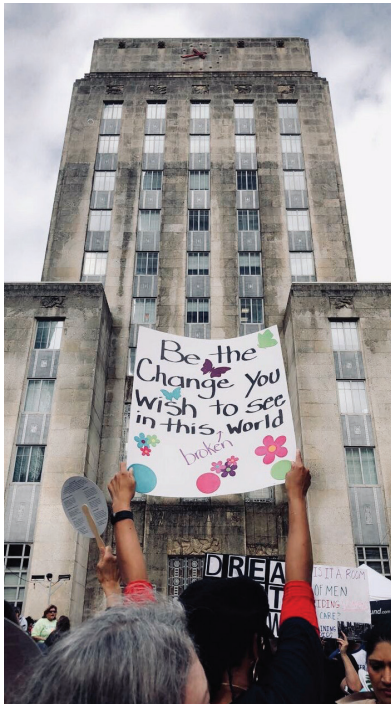 Be the
Change You
Wish to see
in this, world
broken
DREA
IS IT A ROOM
OF MEN
IDING
CARE?
INING